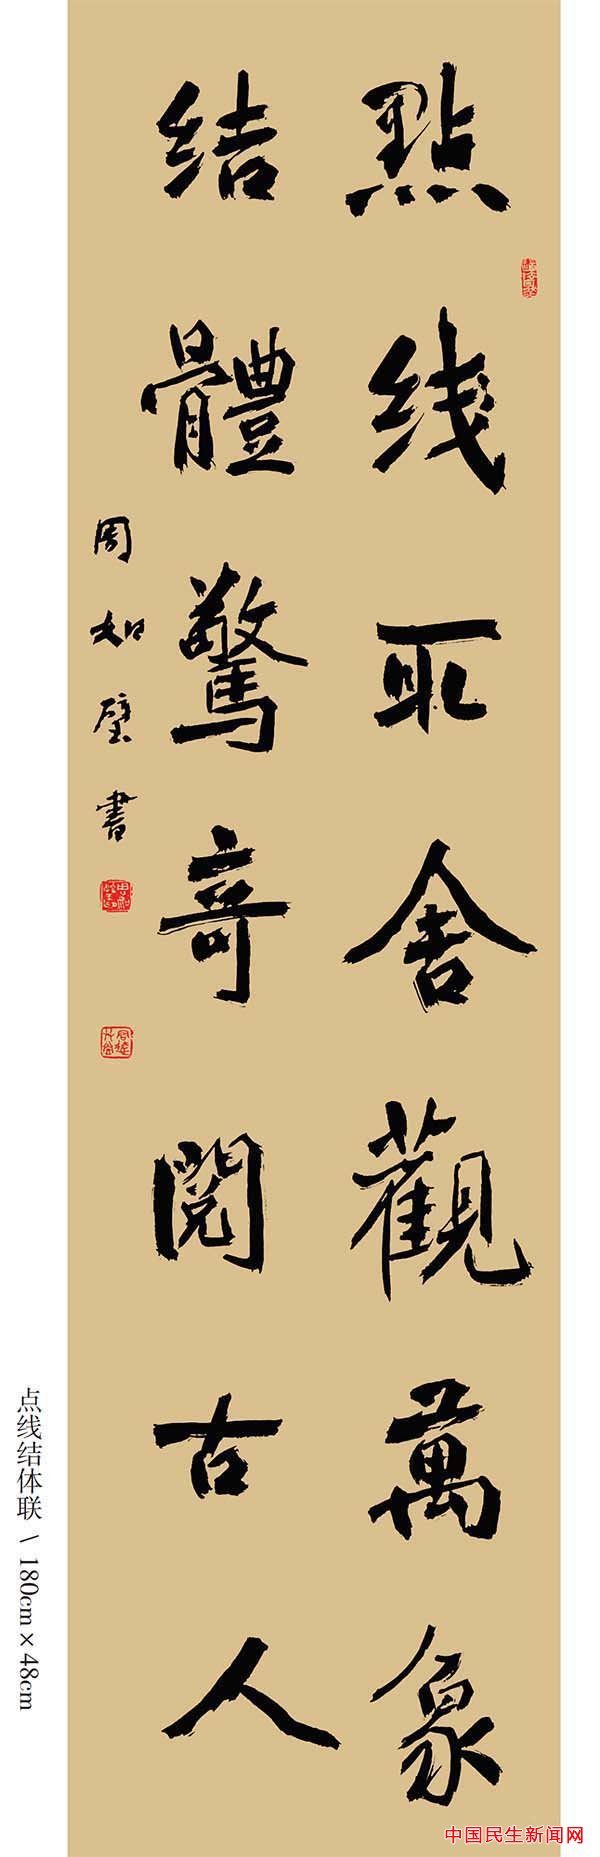 點线取舍觀萬象
结體驚奇閱古人
周如璧書
点线结体联 \ 180cm×48cm
中国民生新闻网